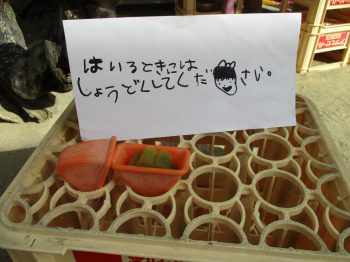 はいるときには
しょうどくしてくださいじ。